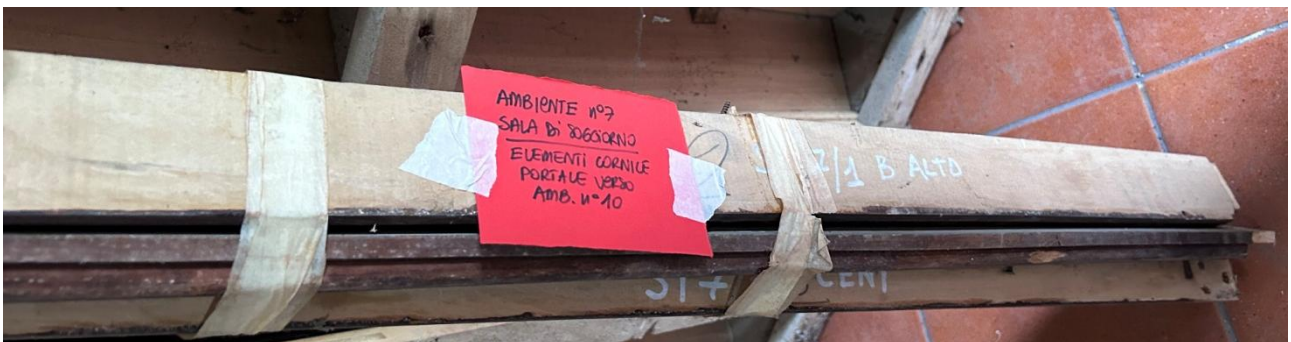 AMBIENTE nº7
SALA Di SOGGIORNO
ELEMENTI CORNICE
PORTALE VERSO
AMB. nº10
7/1 B ALTO